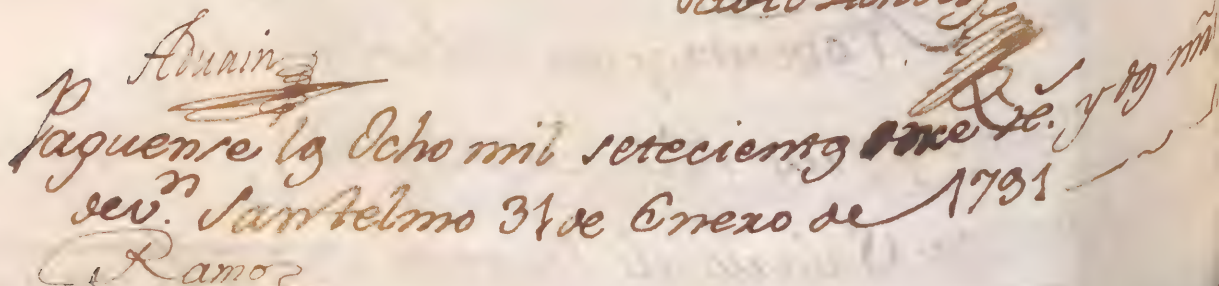 Aduain
Paguense los Ocho mil setecientos once rs. y dos mrs
de v.n Santelmo 31 de Enero de 1791
Ramos